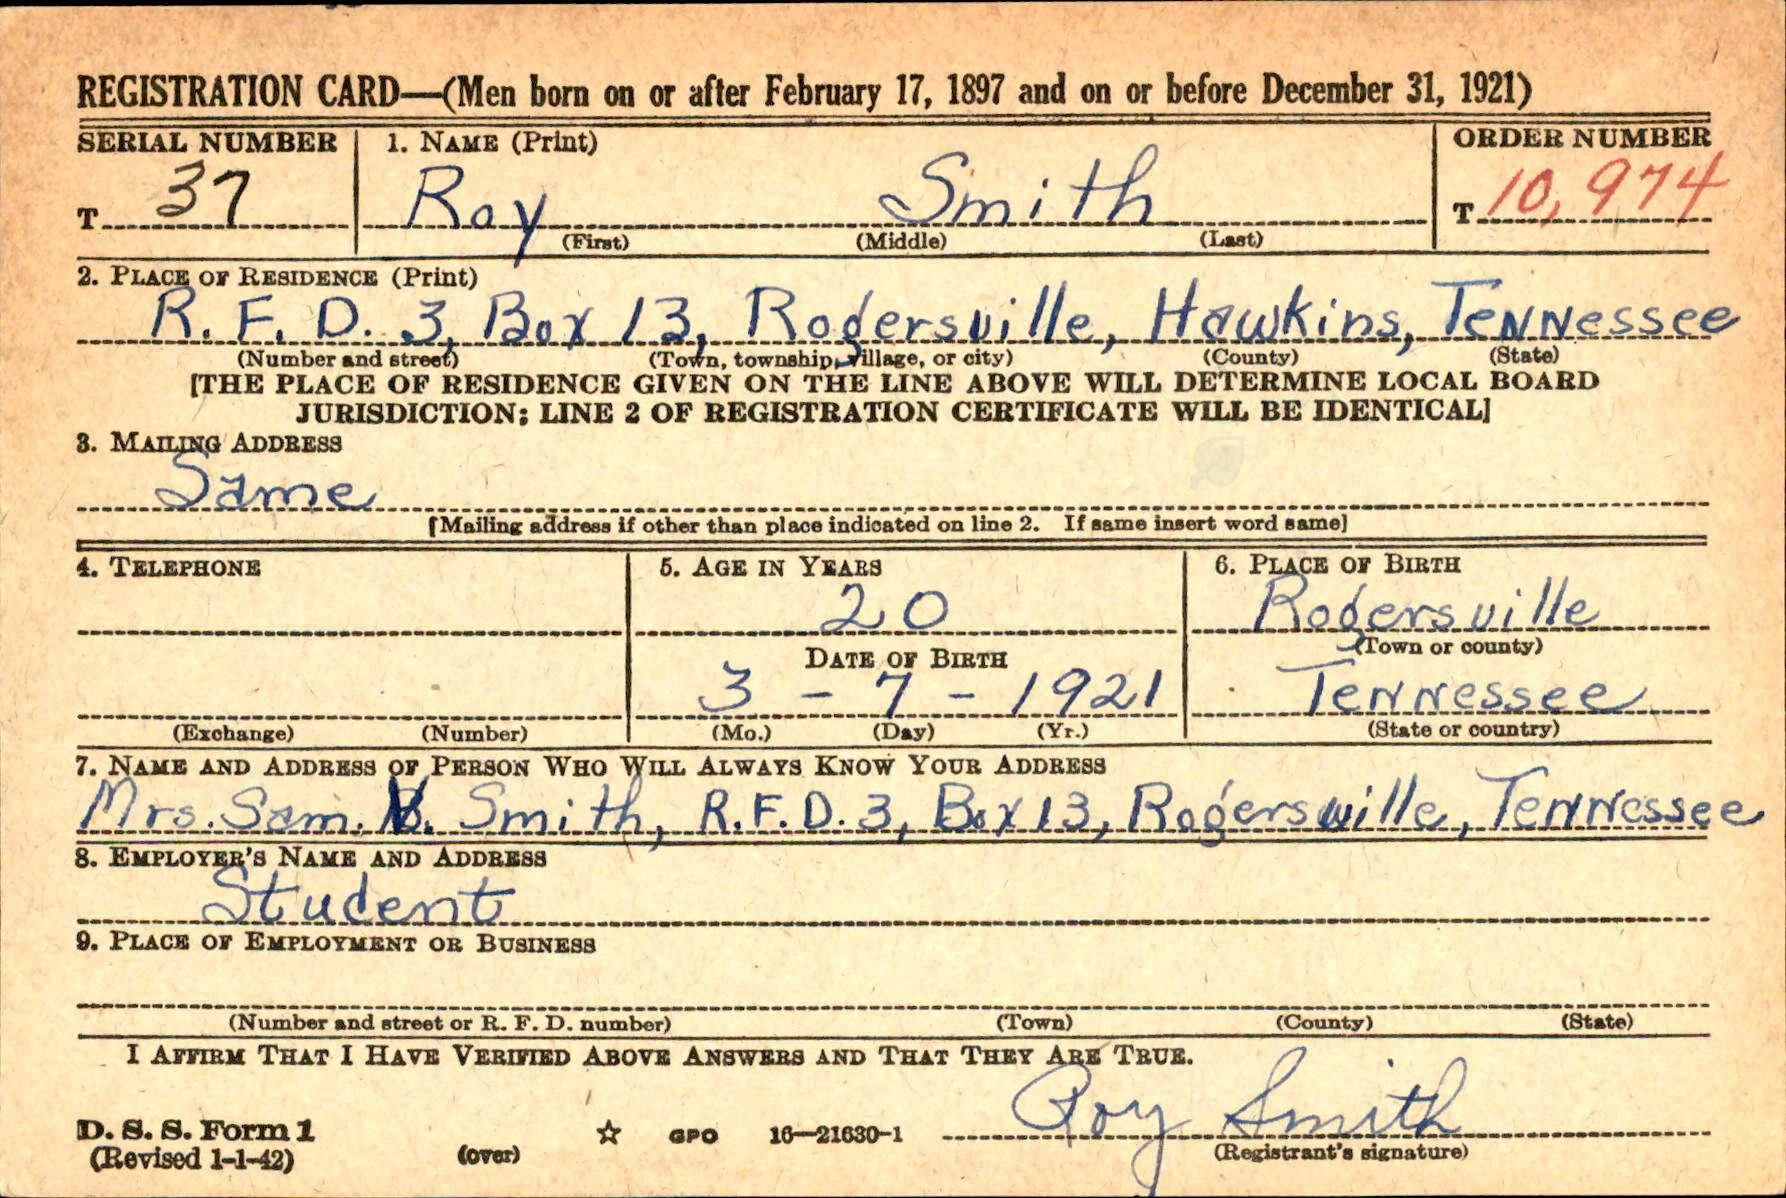 REGISTRATION CARD—(Men born on or after February 17, 1897 and on or before December 31, 1921)
SERIAL NUMBER 1. NAME (Print) ORDER NUMBER
T 37 Roy Smith T 10,974
(First) (Middle) (Last)
2. PLACE OF RESIDENCE (Print)
R. F. D. 3, Box 13, Rogersville, Hawkins, Tennessee
(Number and street) (Town, township, village, or city) (County) (State)
[THE PLACE OF RESIDENCE GIVEN ON THE LINE ABOVE WILL DETERMINE LOCAL BOARD
JURISDICTION; LINE 2 OF REGISTRATION CERTIFICATE WILL BE IDENTICAL]
3. MAILING ADDRESS
Same
[Mailing address if other than place indicated on line 2. If same insert word same]
4. TELEPHONE 5. AGE IN YEARS 6. PLACE OF BIRTH
20 Rogersville
DATE OF BIRTH (Town or county)
3 - 7 - 1921 Tennessee
(Exchange) (Number) (Mo.) (Day) (Yr.) (State or country)
7. NAME AND ADDRESS OF PERSON WHO WILL ALWAYS KNOW YOUR ADDRESS
Mrs. Sam. Smith, R.F.D. 3, Box 13, Rogersville, Tennessee
8. EMPLOYER'S NAME AND ADDRESS
Student
9. PLACE OF EMPLOYMENT OR BUSINESS
(Number and street or R. F. D. number) (Town) (County) (State)
I AFFIRM THAT I HAVE VERIFIED ABOVE ANSWERS AND THAT THEY ARE TRUE.
Roy Smith
D. S. S. Form 1 GPO 16—21630-1
(Revised 1-1-42) (over) (Registrant's signature)